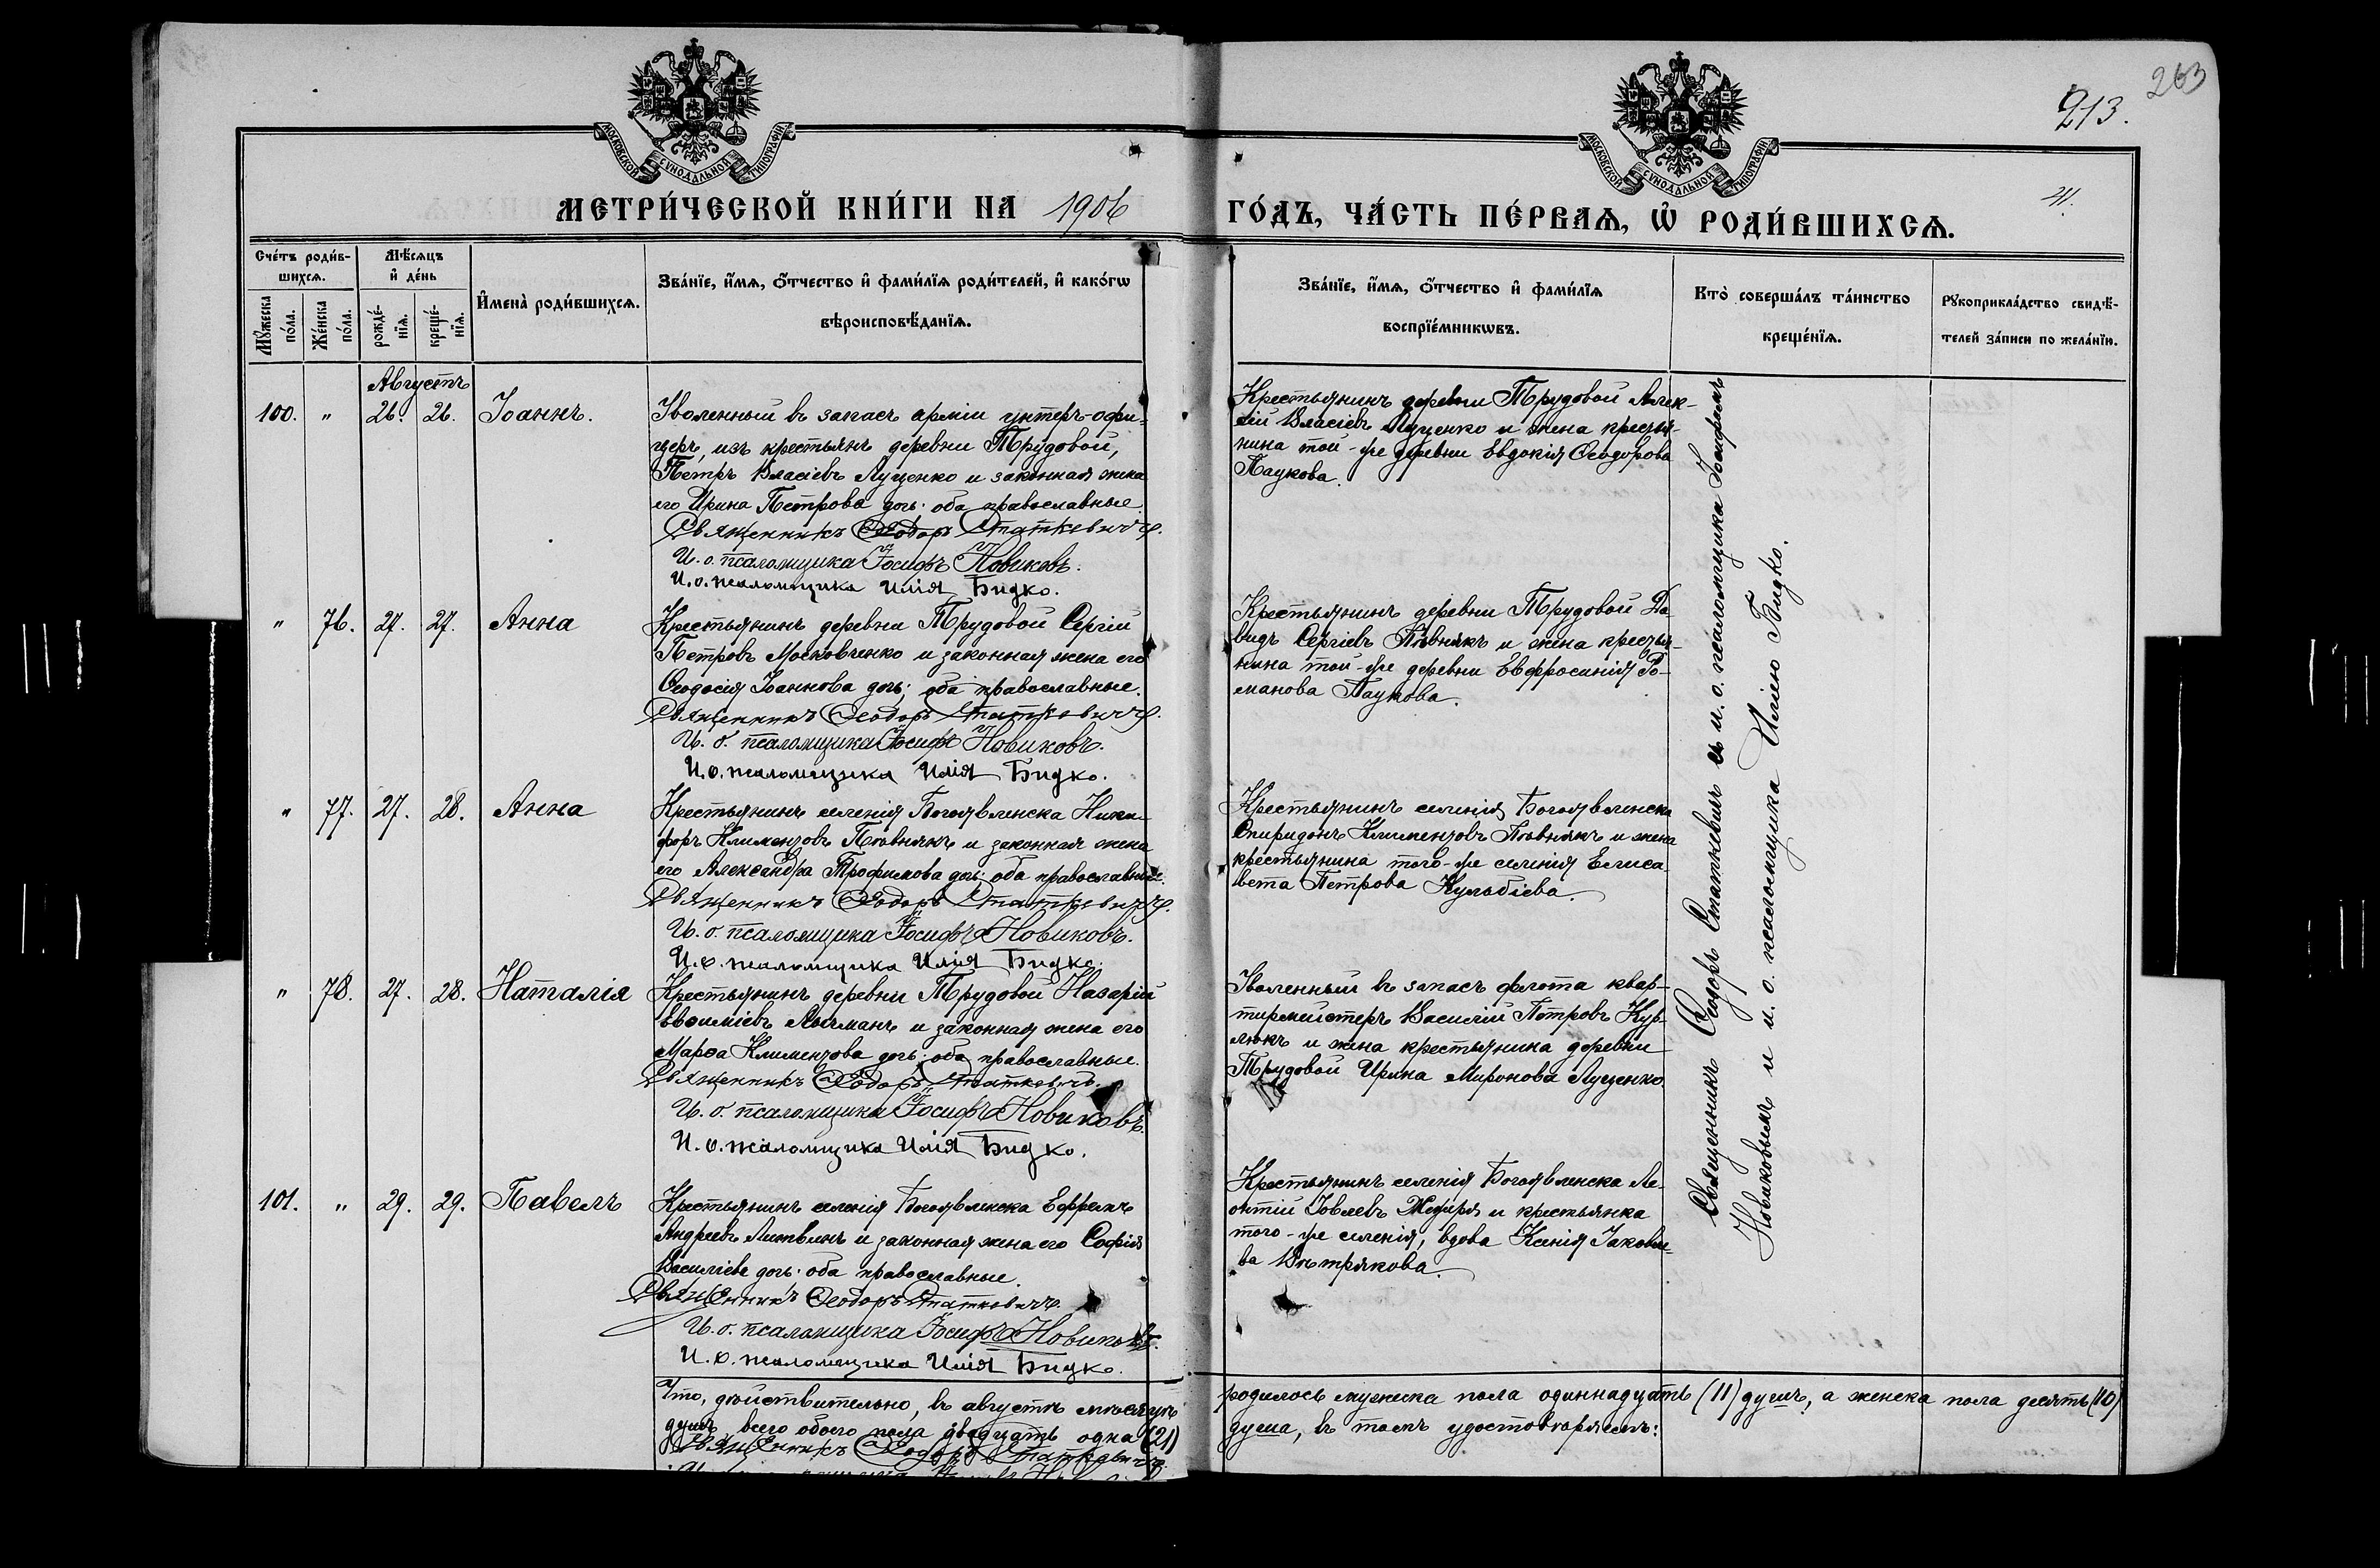 263
213.
МОСКОВСКОЙ СѴНОДАЛЬНОЙ ТИПОГРАФІИ
МОСКОВСКОЙ СѴНОДАЛЬНОЙ ТИПОГРАФІИ
МЕТРИ́ЧЕСКОЙ КНИ́ГИ НА 1906
ГО́ДЪ, ЧА́СТЬ ПЕ́РВАѦ, Ѡ҆ РОДИ́ВШИХСѦ.
Сче́тъ роди́в-
шихсѧ.
Мѣ́сѧцъ
и҆ де́нь
Мꙋ́жеска
по́ла.
Же́нска
по́ла.
рожде́-
нїѧ.
креще́-
нїѧ.
И҆мена̀ роди́вшихсѧ.
Зва́нїе, и҆́мѧ, ѻ҆́тчество и҆ фами́лїѧ роди́телей, и҆ како́гѡ
вѣроисповѣ́данїѧ.
Зва́нїе, и҆́мѧ, ѻ҆́тчество и҆ фами́лїѧ
воспрїе́мникѡвъ.
Кто̀ соверша́лъ та́инство
креще́нїѧ.
Рꙋкоприкла́дство свидѣ́-
телей за́писи по жела́нїю.
Августъ
100. " 26. 26. Іоаннъ.
Уволенный въ запасъ арміи унтеръ-офи-
церъ, изъ крестьянъ деревни Трудовой,
Петръ Власіевъ Луценко и законная жена
его Ирина Петрова дочь; оба православные.
Священникъ Ѳеодоръ Статкевичъ.
И. о. псаломщика Іосифъ Новиковъ.
И. о. псаломщика Илія Бидко.
Крестьянинъ деревни Трудовой Алек-
сій Власіевъ Луценко и жена крестья-
нина той-же деревни Евдокія Ѳеодорова
Паукова.
" 76. 27. 27. Анна
Крестьянинъ деревни Трудовой Сергій
Петровъ Московченко и законная жена его
Ѳеодосія Іоаннова дочь; оба православные.
Священникъ Ѳеодоръ Статкевичъ.
И. о. псаломщика Іосифъ Новиковъ.
И. о. псаломщика Илія Бидко.
Крестьянинъ деревни Трудовой Да-
видъ Сергіевъ Пивнякъ и жена крестья-
нина той-же деревни Евфросинія Ро-
манова Паукова.
" 77. 27. 28. Анна
Крестьянинъ селенія Богоявленска Ники-
форъ Климентовъ Пивнякъ и законная жена
его Александра Трофимова дочь; оба православные.
Священникъ Ѳеодоръ Статкевичъ.
И. о. псаломщика Іосифъ Новиковъ.
И. о. псаломщика Илія Бидко.
Крестьянинъ селенія Богоявленска
Спиридонъ Климентовъ Пивнякъ и жена
крестьянина того-же селенія Елиса-
вета Петрова Кульбіева.
" 78. 27. 28. Наталія
Крестьянинъ деревни Трудовой Назарій
Евѳиміевъ Лычманъ и законная жена его
Марѳа Климентова дочь; оба православные.
Священникъ Ѳеодоръ Статкевичъ.
И. о. псаломщика Іосифъ Новиковъ.
И. о. псаломщика Илія Бидко.
Уволенный въ запасъ флота квар-
тирмейстеръ Василій Петровъ Кур-
люкъ и жена крестьянина деревни
Трудовой Ирина Миронова Луценко.
101. " 29. 29. Павелъ
Крестьянинъ селенія Богоявленска Ефремъ
Андреевъ Литвинъ и законная жена его Софія
Василіева дочь; оба православные.
Священникъ Ѳеодоръ Статкевичъ.
И. о. псаломщика Іосифъ Новиковъ.
И. о. псаломщика Илія Бидко.
Крестьянинъ селенія Богоявленска Ле-
онтій Іовлевъ и крестьянка
того-же селенія, вдова Ксенія Іаковле-
ва Вѣтрякова.
Священникъ Ѳеодоръ Статкевичъ съ и. о. псаломщика Іосифомъ
Новиковымъ и и. о. псаломщика Иліею Бидко.
Что, дѣйствительно, въ августѣ мѣсяцѣ родилось мужеска пола одиннадцать (11) душъ, а женска пола десять (10)
душъ, всего обоего пола двадцать одна (21) душа, въ томъ удостовѣряемъ:
Священникъ Ѳеодоръ Статкевичъ.